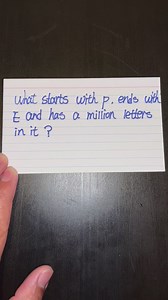 What starts with p, ends with
E and has a million letters
in it ?